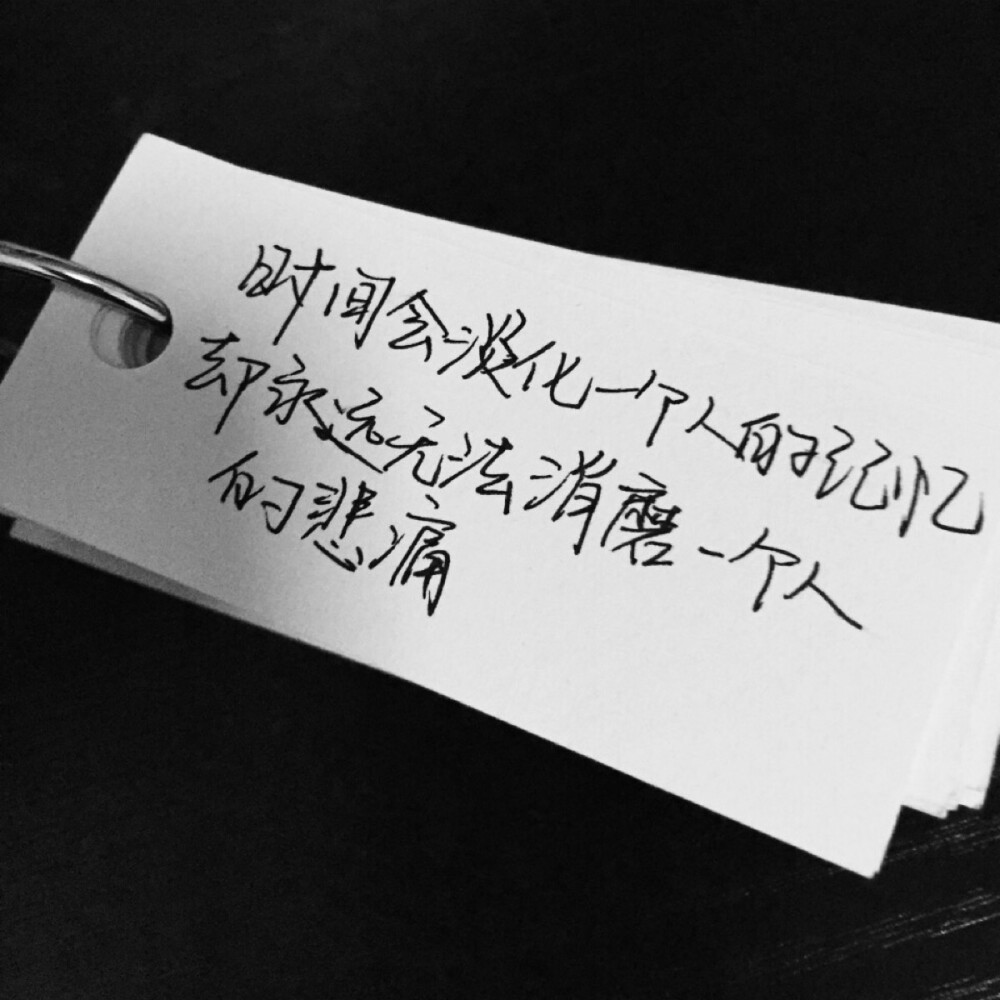 时间会淡化一个人的记忆
却永远无法消磨一个人
的悲痛